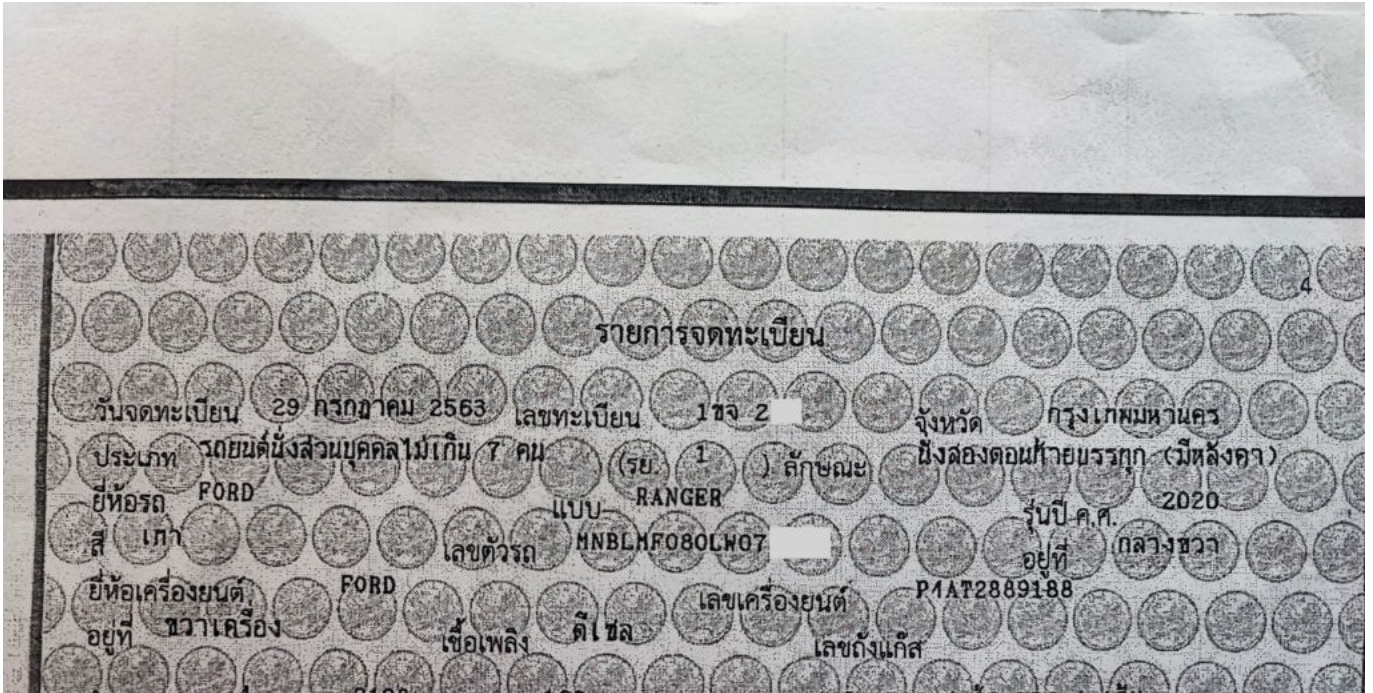 4
รายการจดทะเบียน
วันจดทะเบียน 29 กรกฎาคม 2563 เลขทะเบียน 1ขจ 2 จังหวัด กรุงเทพมหานคร
ประเภท รถยนต์นั่งส่วนบุคคลไม่เกิน 7 คน (รย. 1 ) ลักษณะ นั่งสองตอนท้ายบรรทุก (มีหลังคา)
ยี่ห้อรถ FORD แบบ RANGER รุ่นปี ค.ศ. 2020
สี เทา เลขตัวรถ MNBLMF080LW07 อยู่ที่ กลางขวา
ยี่ห้อเครื่องยนต์ FORD เลขเครื่องยนต์ P4AT2889188
อยู่ที่ ขวาเครื่อง เชื้อเพลิง ดีเซล เลขถังแก๊ส